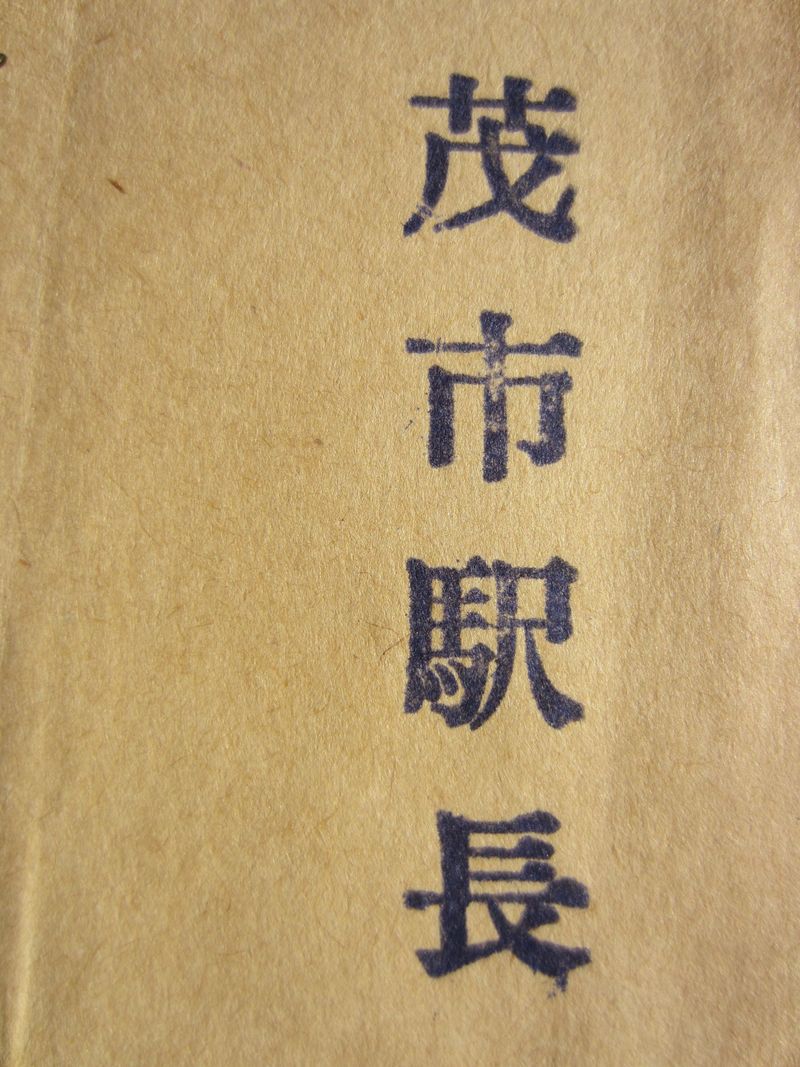 茂市駅長